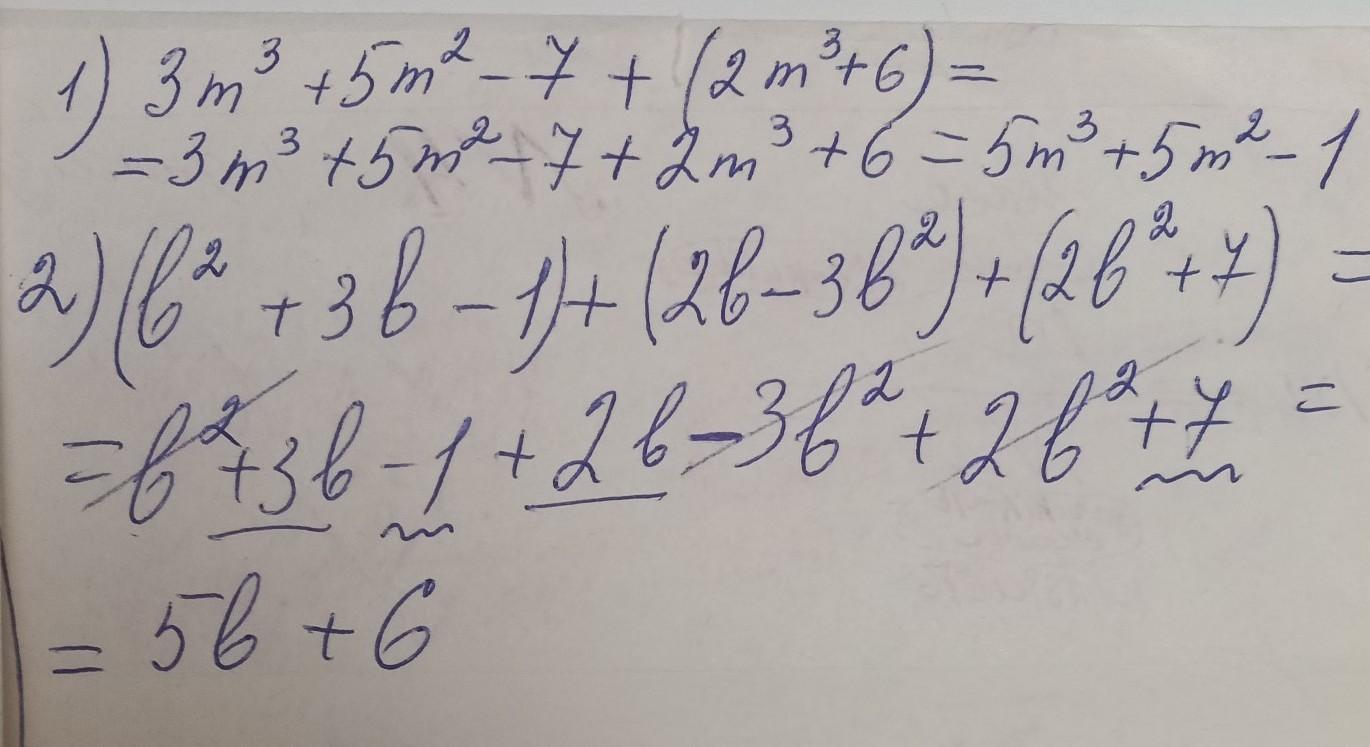 1) 3m³ + 5m² - 7 + (2m³ + 6) =
= 3m³ + 5m² - 7 + 2m³ + 6 = 5m³ + 5m² - 1
2) (b² + 3b - 1) + (2b - 3b²) + (2b² + 7) =
= b² + 3b - 1 + 2b - 3b² + 2b² + 7 =
= 5b + 6